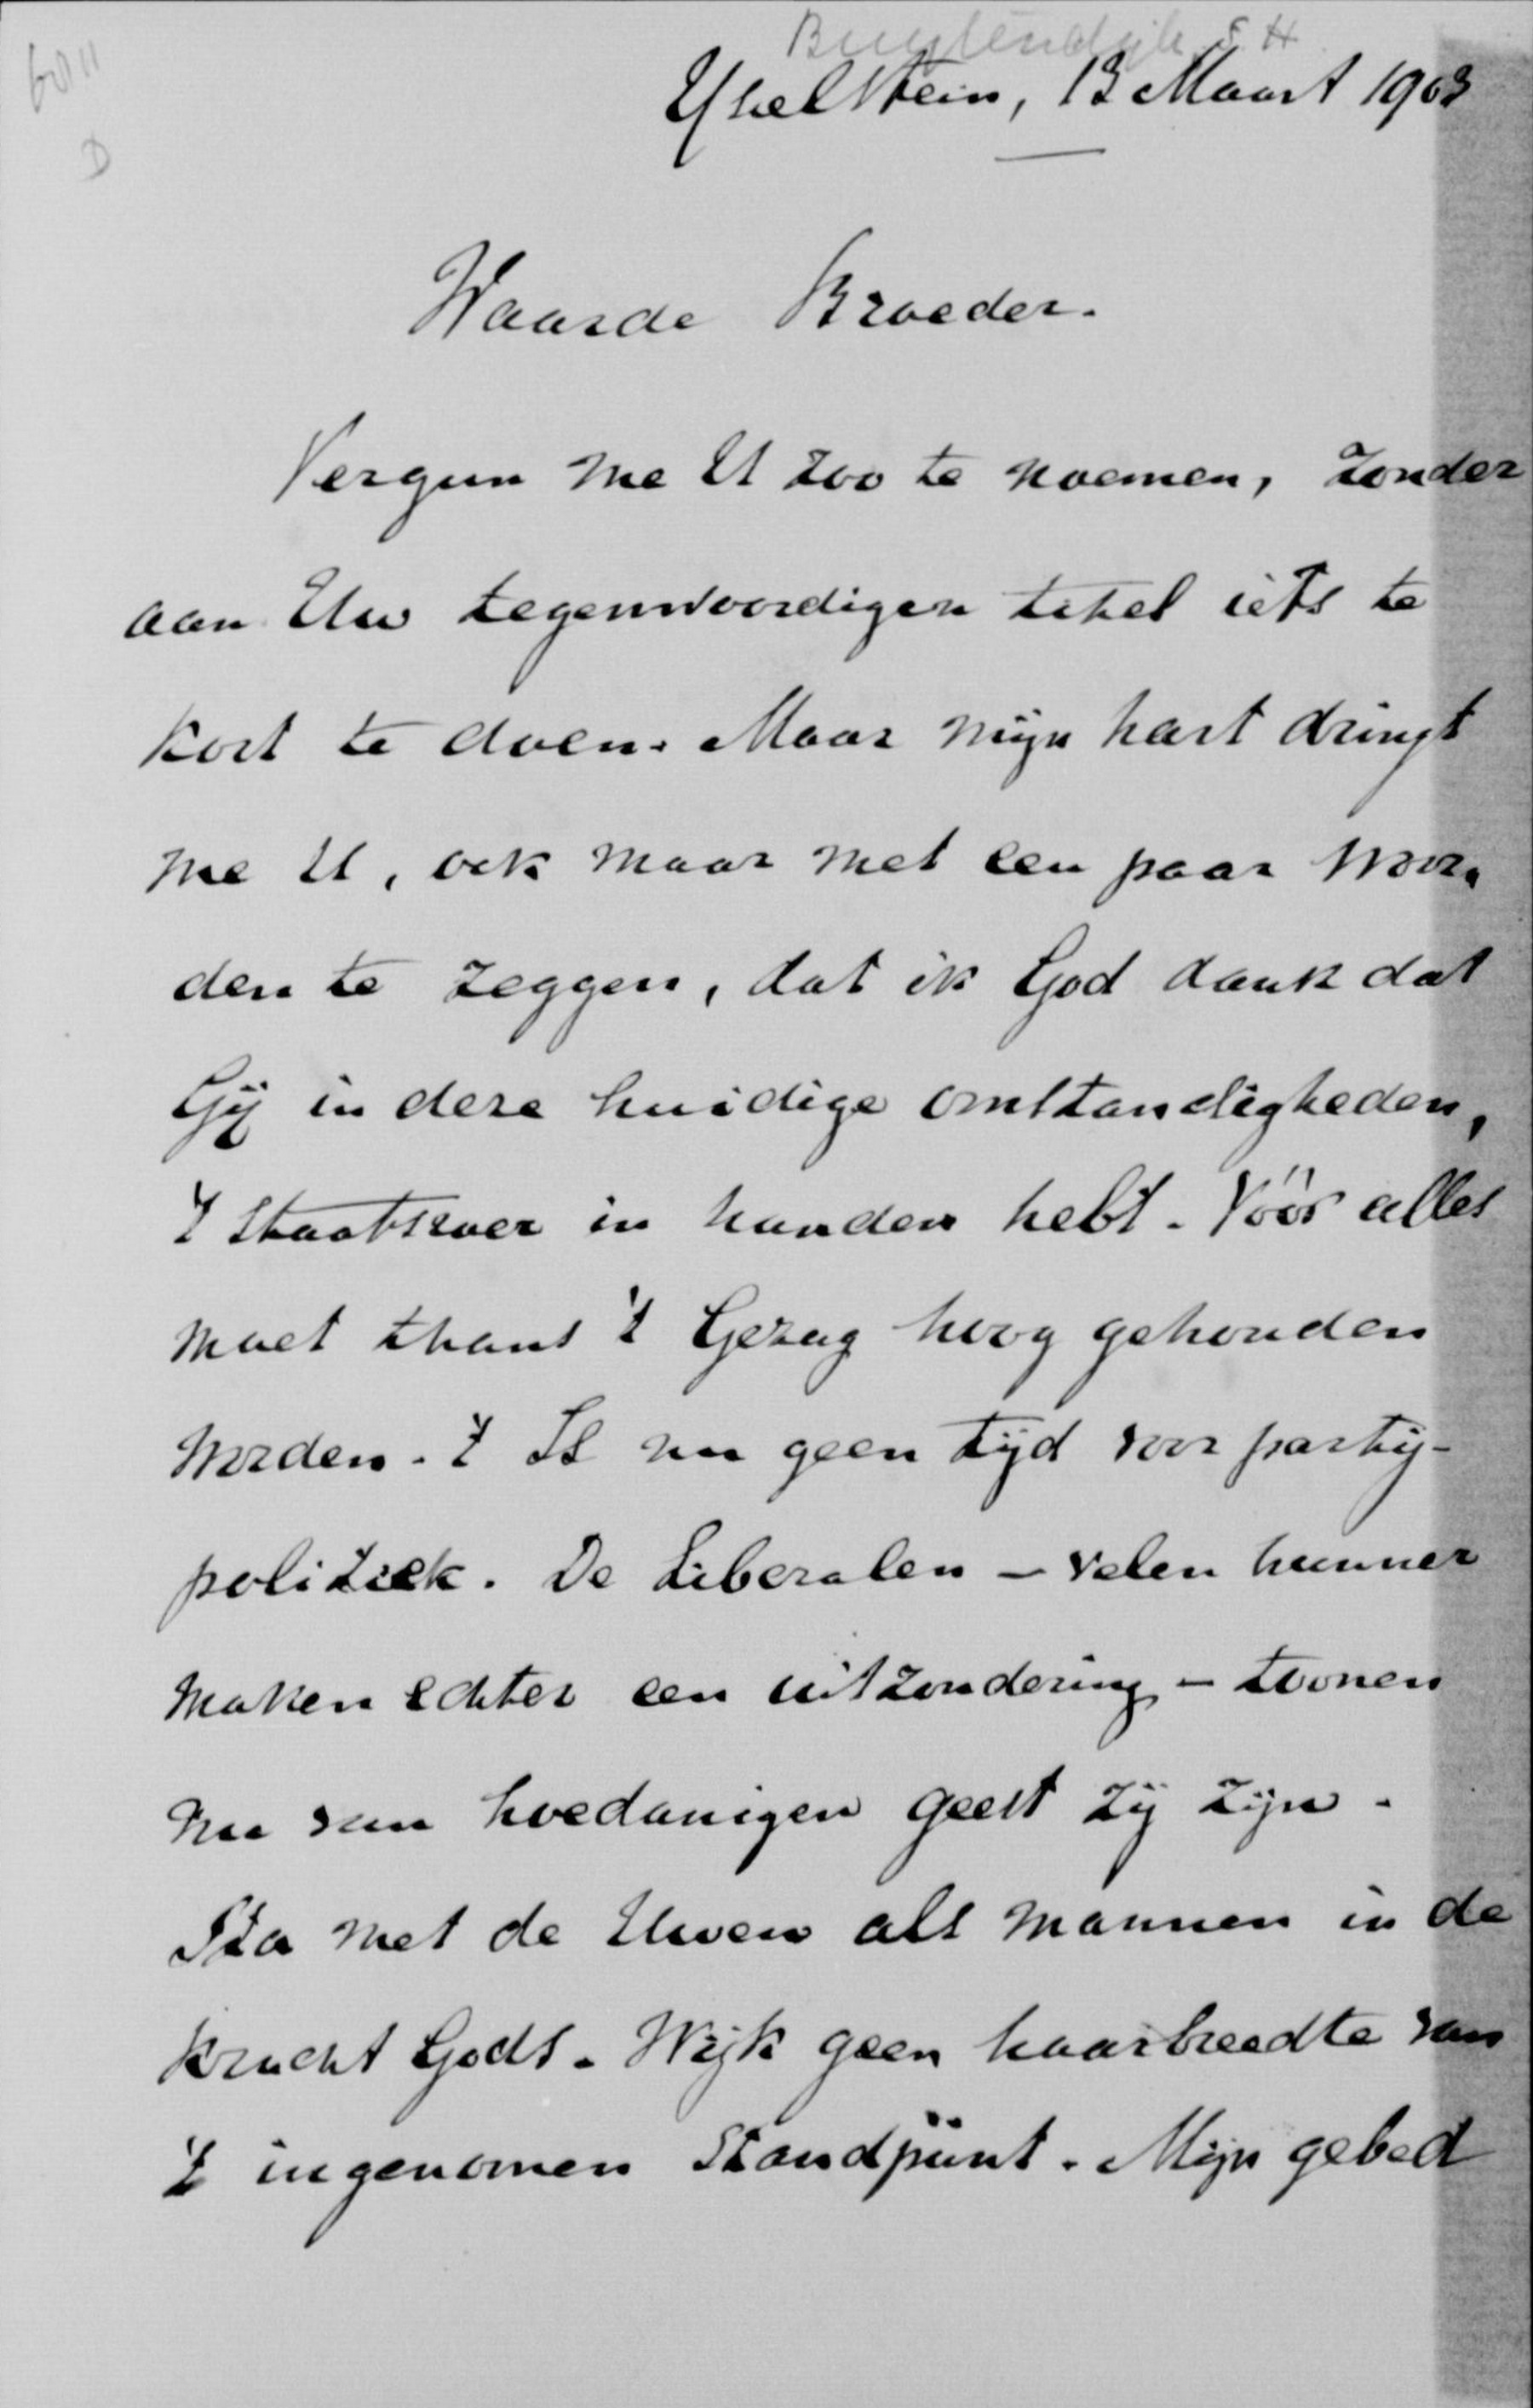 6011
D
Buytendijk S H
Yselstein, 13 Maart 1903
Waarde Broeder.
Vergun me U zoo te noemen, zonder
aan Uw tegenwoordigen titel iets te
kort te doen. Maar mijn hart dringt
me U, ook maar met een paar woor-
den te zeggen, dat ik God dank dat
Gij in deze huidige omstandigheden,
't Staatsroer in handen hebt. Vóór alles
moet thans 't Gezag hoog gehouden
worden. 't Is nu geen tijd voor partij-
politiek. De Liberalen – velen hunner
maken echter een uitzondering – toonen
nu van hoedanigen geest zij zijn.
Sta met de Uwen als mannen in de
kracht Gods. Wijk geen haarbreedte van
't ingenomen standpunt. Mijn gebed